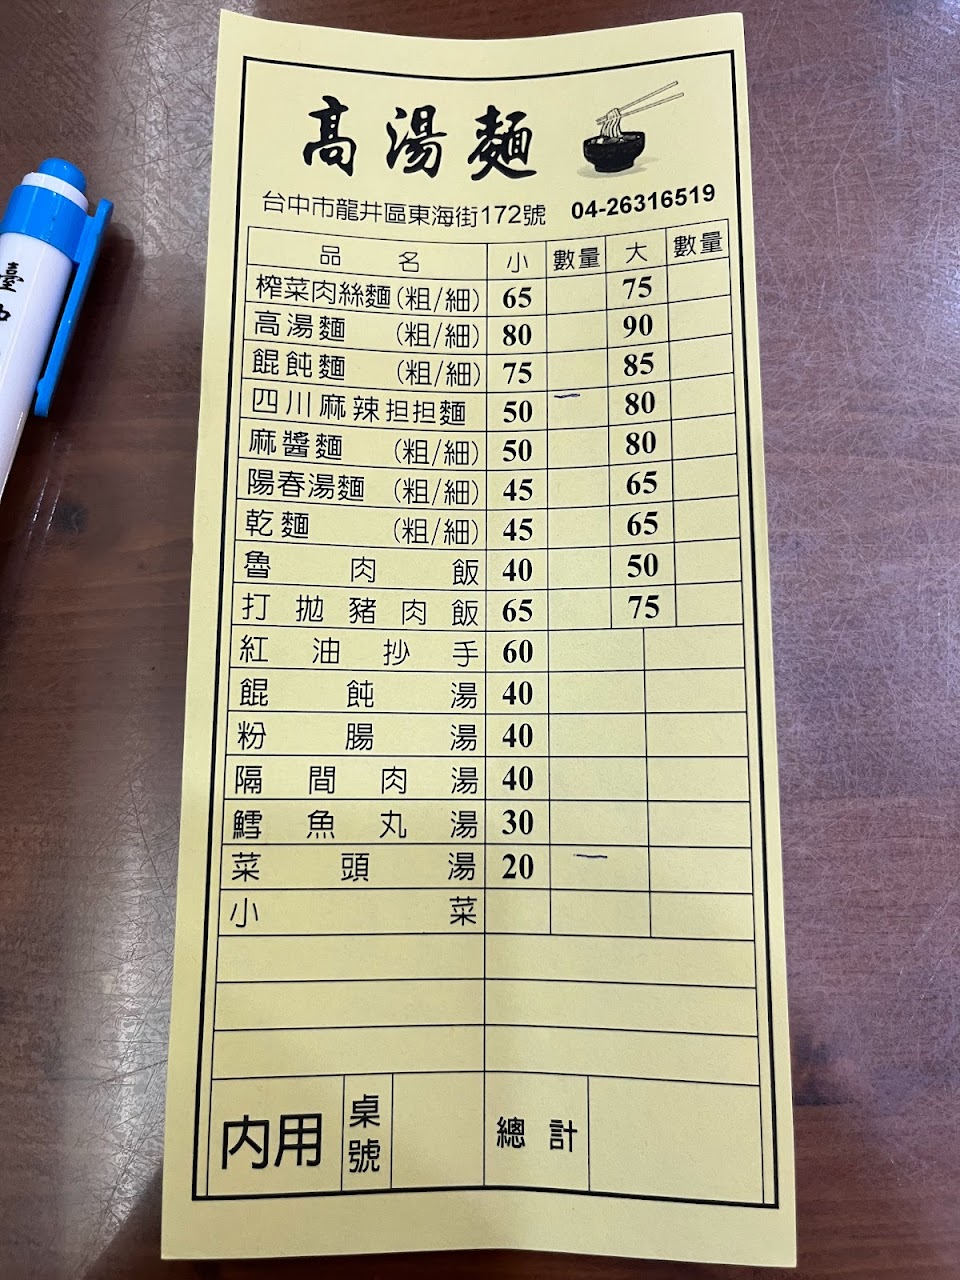 高湯麵
台中市龍井區東海街172號 04-26316519
品名 小 數量 大 數量
榨菜肉絲麵(粗/細) 65 75
高湯麵 (粗/細) 80 90
餛飩麵 (粗/細) 75 85
四川麻辣担担麵 50 80
麻醬麵 (粗/細) 50 80
陽春湯麵 (粗/細) 45 65
乾麵 (粗/細) 45 65
魯肉飯 40 50
打拋豬肉飯 65 75
紅油抄手 60
餛飩湯 40
粉腸湯 40
隔間肉湯 40
鱈魚丸湯 30
菜頭湯 20
小菜
內用 桌號 總計
臺中